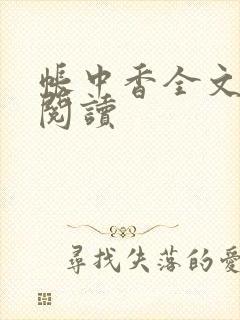 帳中香全文
閱讀
尋找失落的愛